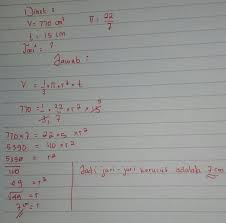 Diket :
V = 770 cm³ π = 22/7
t = 15 cm
Jari² : ?
Jawab :
V = 1/3 × π × r² × t
770 = 1/3 × 22/7 × r² × 15 5
770 × 7 = 22 × 5 × r²
5390 = 110 × r²
5390/110 = r²
49 = r²
√49 = r
7 = r
Jadi jari-jari kerucut adalah 7 cm